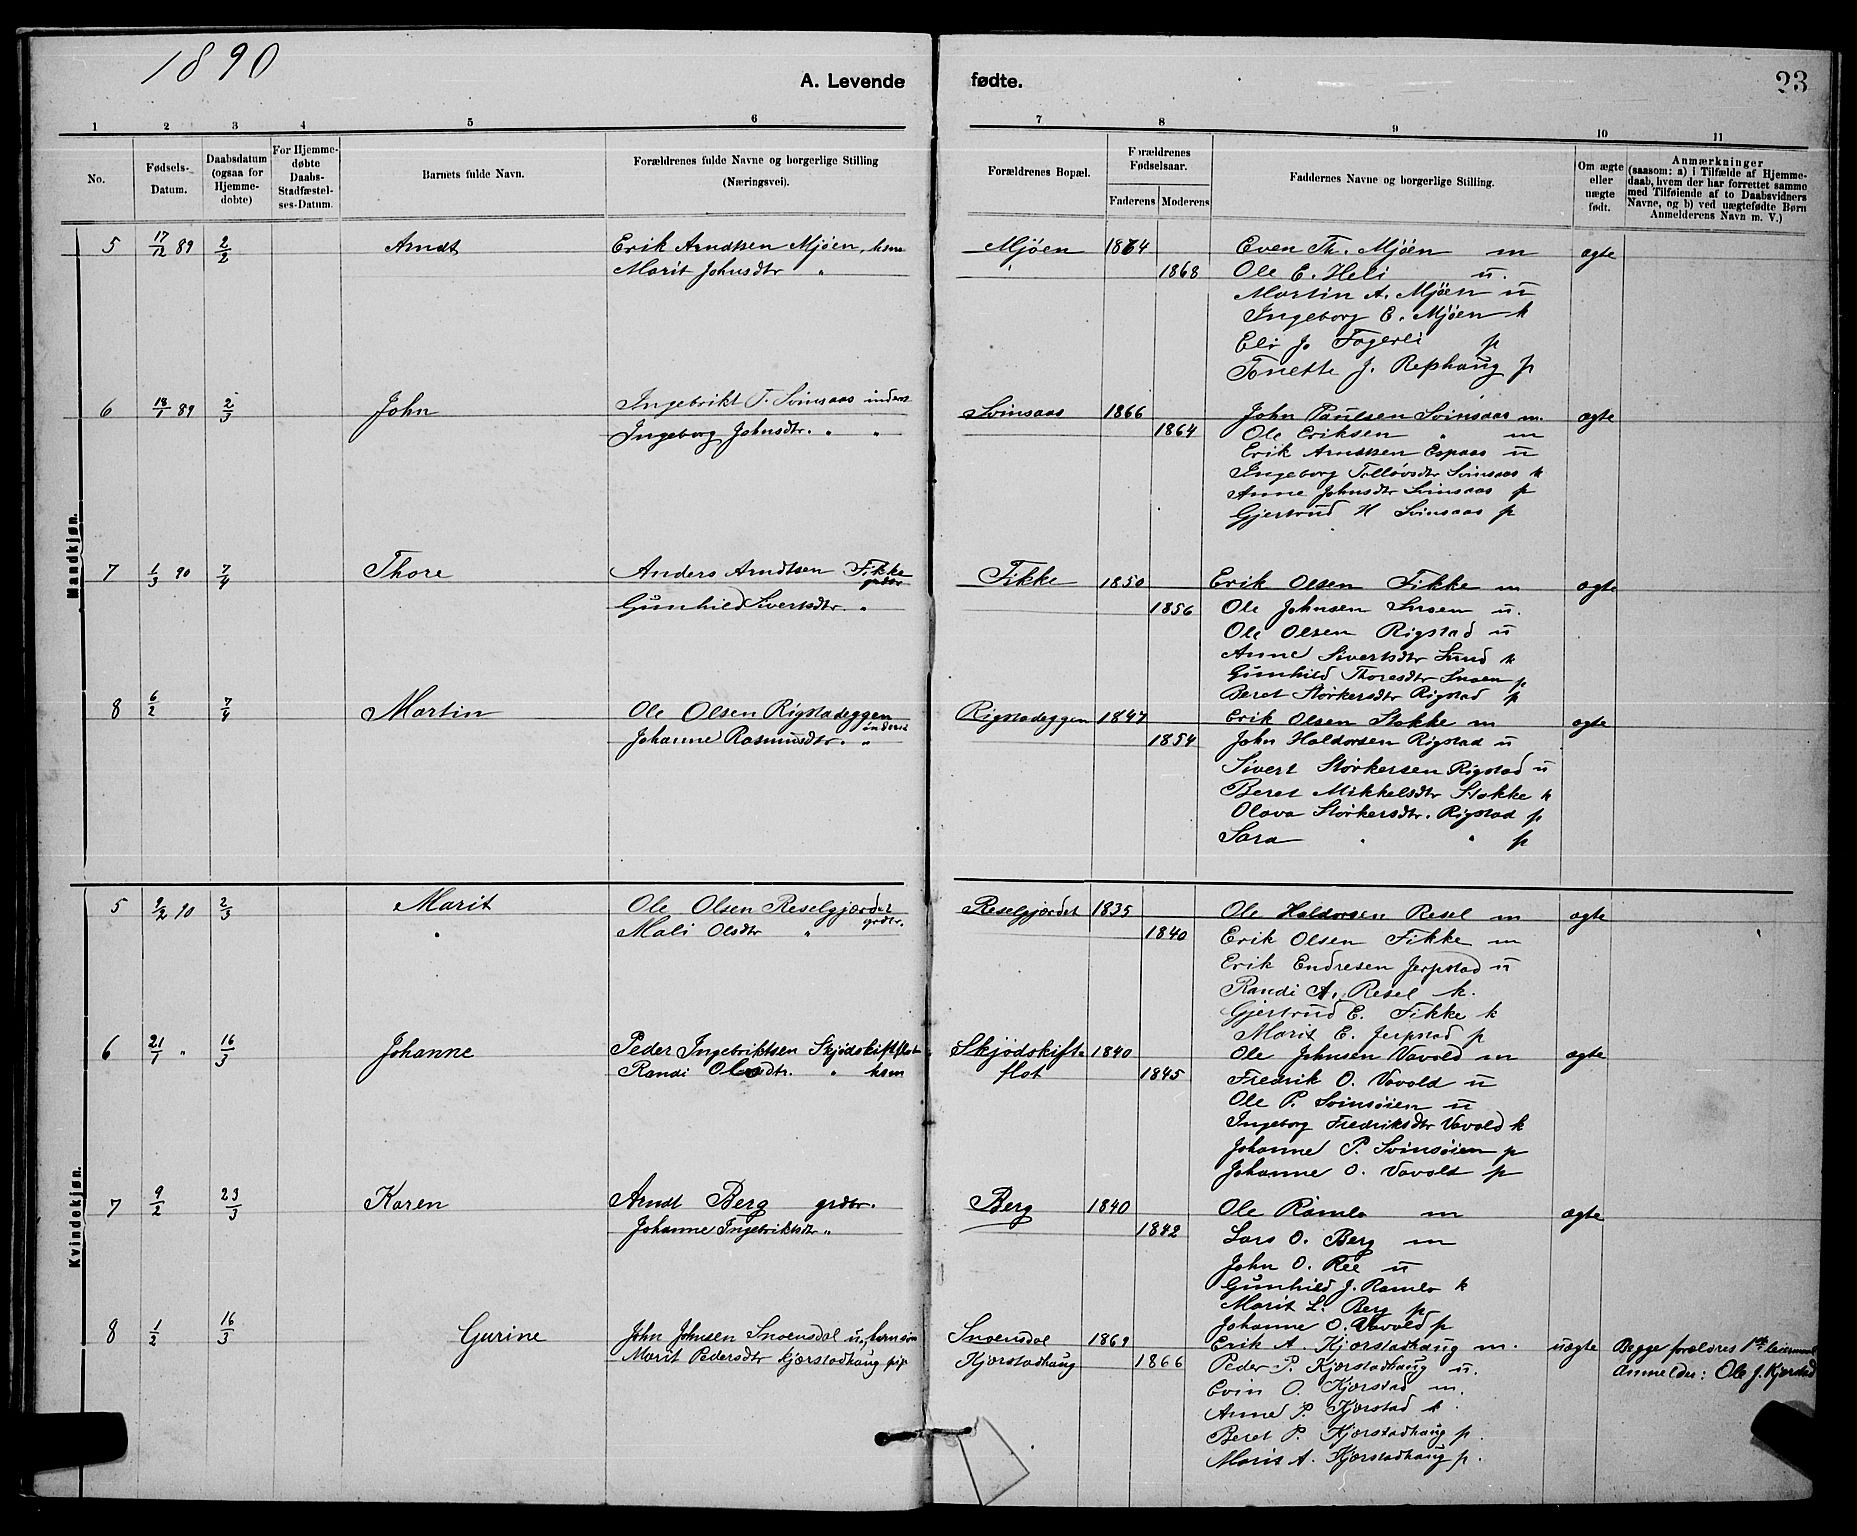 1890
A. Levende fødte.
23
1 2 3 4 5 6 7 8 9 10 11
No.
Fødsels-Datum.
Daabsdatum (ogsaa for Hjemme-døbte)
For Hjemme-døbte Daabs-Stadfæstel-ses-Datum.
Barnets fulde Navn.
Forældrenes fulde Navne og borgerlige Stilling (Næringsvei).
Forældrenes Bopæl.
Forældrenes Fødselsaar.
Faderens Moderens
Faddernes Navne og borgerlige Stilling.
Om ægte eller uægte født.
Anmærkninger (saasom: a) i Tilfælde af Hjemme-daab, hvem der har forrettet samme med Tilføiende af to Daabsvidners Navne, og b) ved uægtefødte Børn Anmelderens Navn m. V.)
Mandkjøn.
5 17/12 89 2/2 Arndt Erik Arndtsen Mjøen, hsm Mjøen 1864 Even Th. Mjøen m ægte
Marit Johnsdtr " 1868 Ole E. Heli u.
Martin A. Mjøen u
Ingeborg E. Mjøen k
Eli J. Fagerli p
Tonette J. Rephaug p
6 18/1 89 2/3 John Ingebrikt T. Svinsaas inderst Svinsaas 1866 John Paulsen Svinsaas m. ægte
Ingeborg Johnsdtr. " " 1864 Ole Eriksen " m
Erik Arndtsen Espaas u
Ingeborg Tollovsdtr Svinsaas k
Anne Johnsdtr Svinsaas p
Gjertrud H Svinsaas p
7 1/3 90 7/4 Thore Anders Arndtsen Fikke grdbr Fikke 1850 Erik Olsen Fikke m ægte
Gunhild Sivertsdtr. " 1856 Ole Johnsen Snoen u.
Ole Olsen Rigstad u
Anne Sivertsdtr Lund k
Gunhild Thoresdtr Snoen p
Beret Størkersdtr Rigstad p
8 6/2 7/4 Martin Ole Olsen Rigstadeggen inderst Rigstadeggen 1847 Erik Olsen Stokke m ægte
Johanne Rasmusdtr. " 1854 John Haldorsen Rigstad u
Sivert Størkersen Rigstad u
Beret Mikkelsdtr Stokke k
Olava Størkersdtr. Rigstad p
Sara " " p
Kvindekjøn.
5 9/2 90 2/3 Marit Ole Olsen Reselgjærdet grdbr. Reselgjerdet 1835 Ole Haldorsen Resel m ægte
Mali Olsdtr " 1840 Erik Olsen Fikke m
Erik Endresen Jerpstad u
Randi A. Resel k.
Gjertrud E. Fikke k
Marit E. Jerpstad p
6 21/1 " 16/3 Johanne Peder Ingebriktsen Skjødskiftflot Skjødskift- 1840 Ole Johnsen Vavold m ægte
Randi Olsdtr. " hsm flot 1845 Fredrik O. Vavold u
Ole P. Svinsøien u
Ingeborg Fredriksdtr Vavold k
Johanne P. Svinsøien p
Johanne O. Vavold p
7 9/2 23/3 Karen Arndt Berg grdbr. Berg 1840 Ole Ramlo m ægte
Johanne Ingebriktsdtr " 1842 Lars O. Berg m
John O. Ree u
Gunhild J. Ramlo k
Marit L. Berg p
Johanne O. Vavold p
8 1/2 16/3 Gurine John Johnsen Snoensdal u, Snoensdal 1869 Erik A. Kjorstadhaug m. uægte Begge forældres 1ste leiermaal
Marit Pedersdtr Kjorstadhaug pige Kjorstadhaug 1866 Peder P. Kjorstadhaug u. Anmelder: Ole J. Kjorstad
Evin O. Kjorstad m.
Anne P. Kjorstad k.
Beret P. Kjorstadhaug p.
Marit A. Kjorstadhaug p.